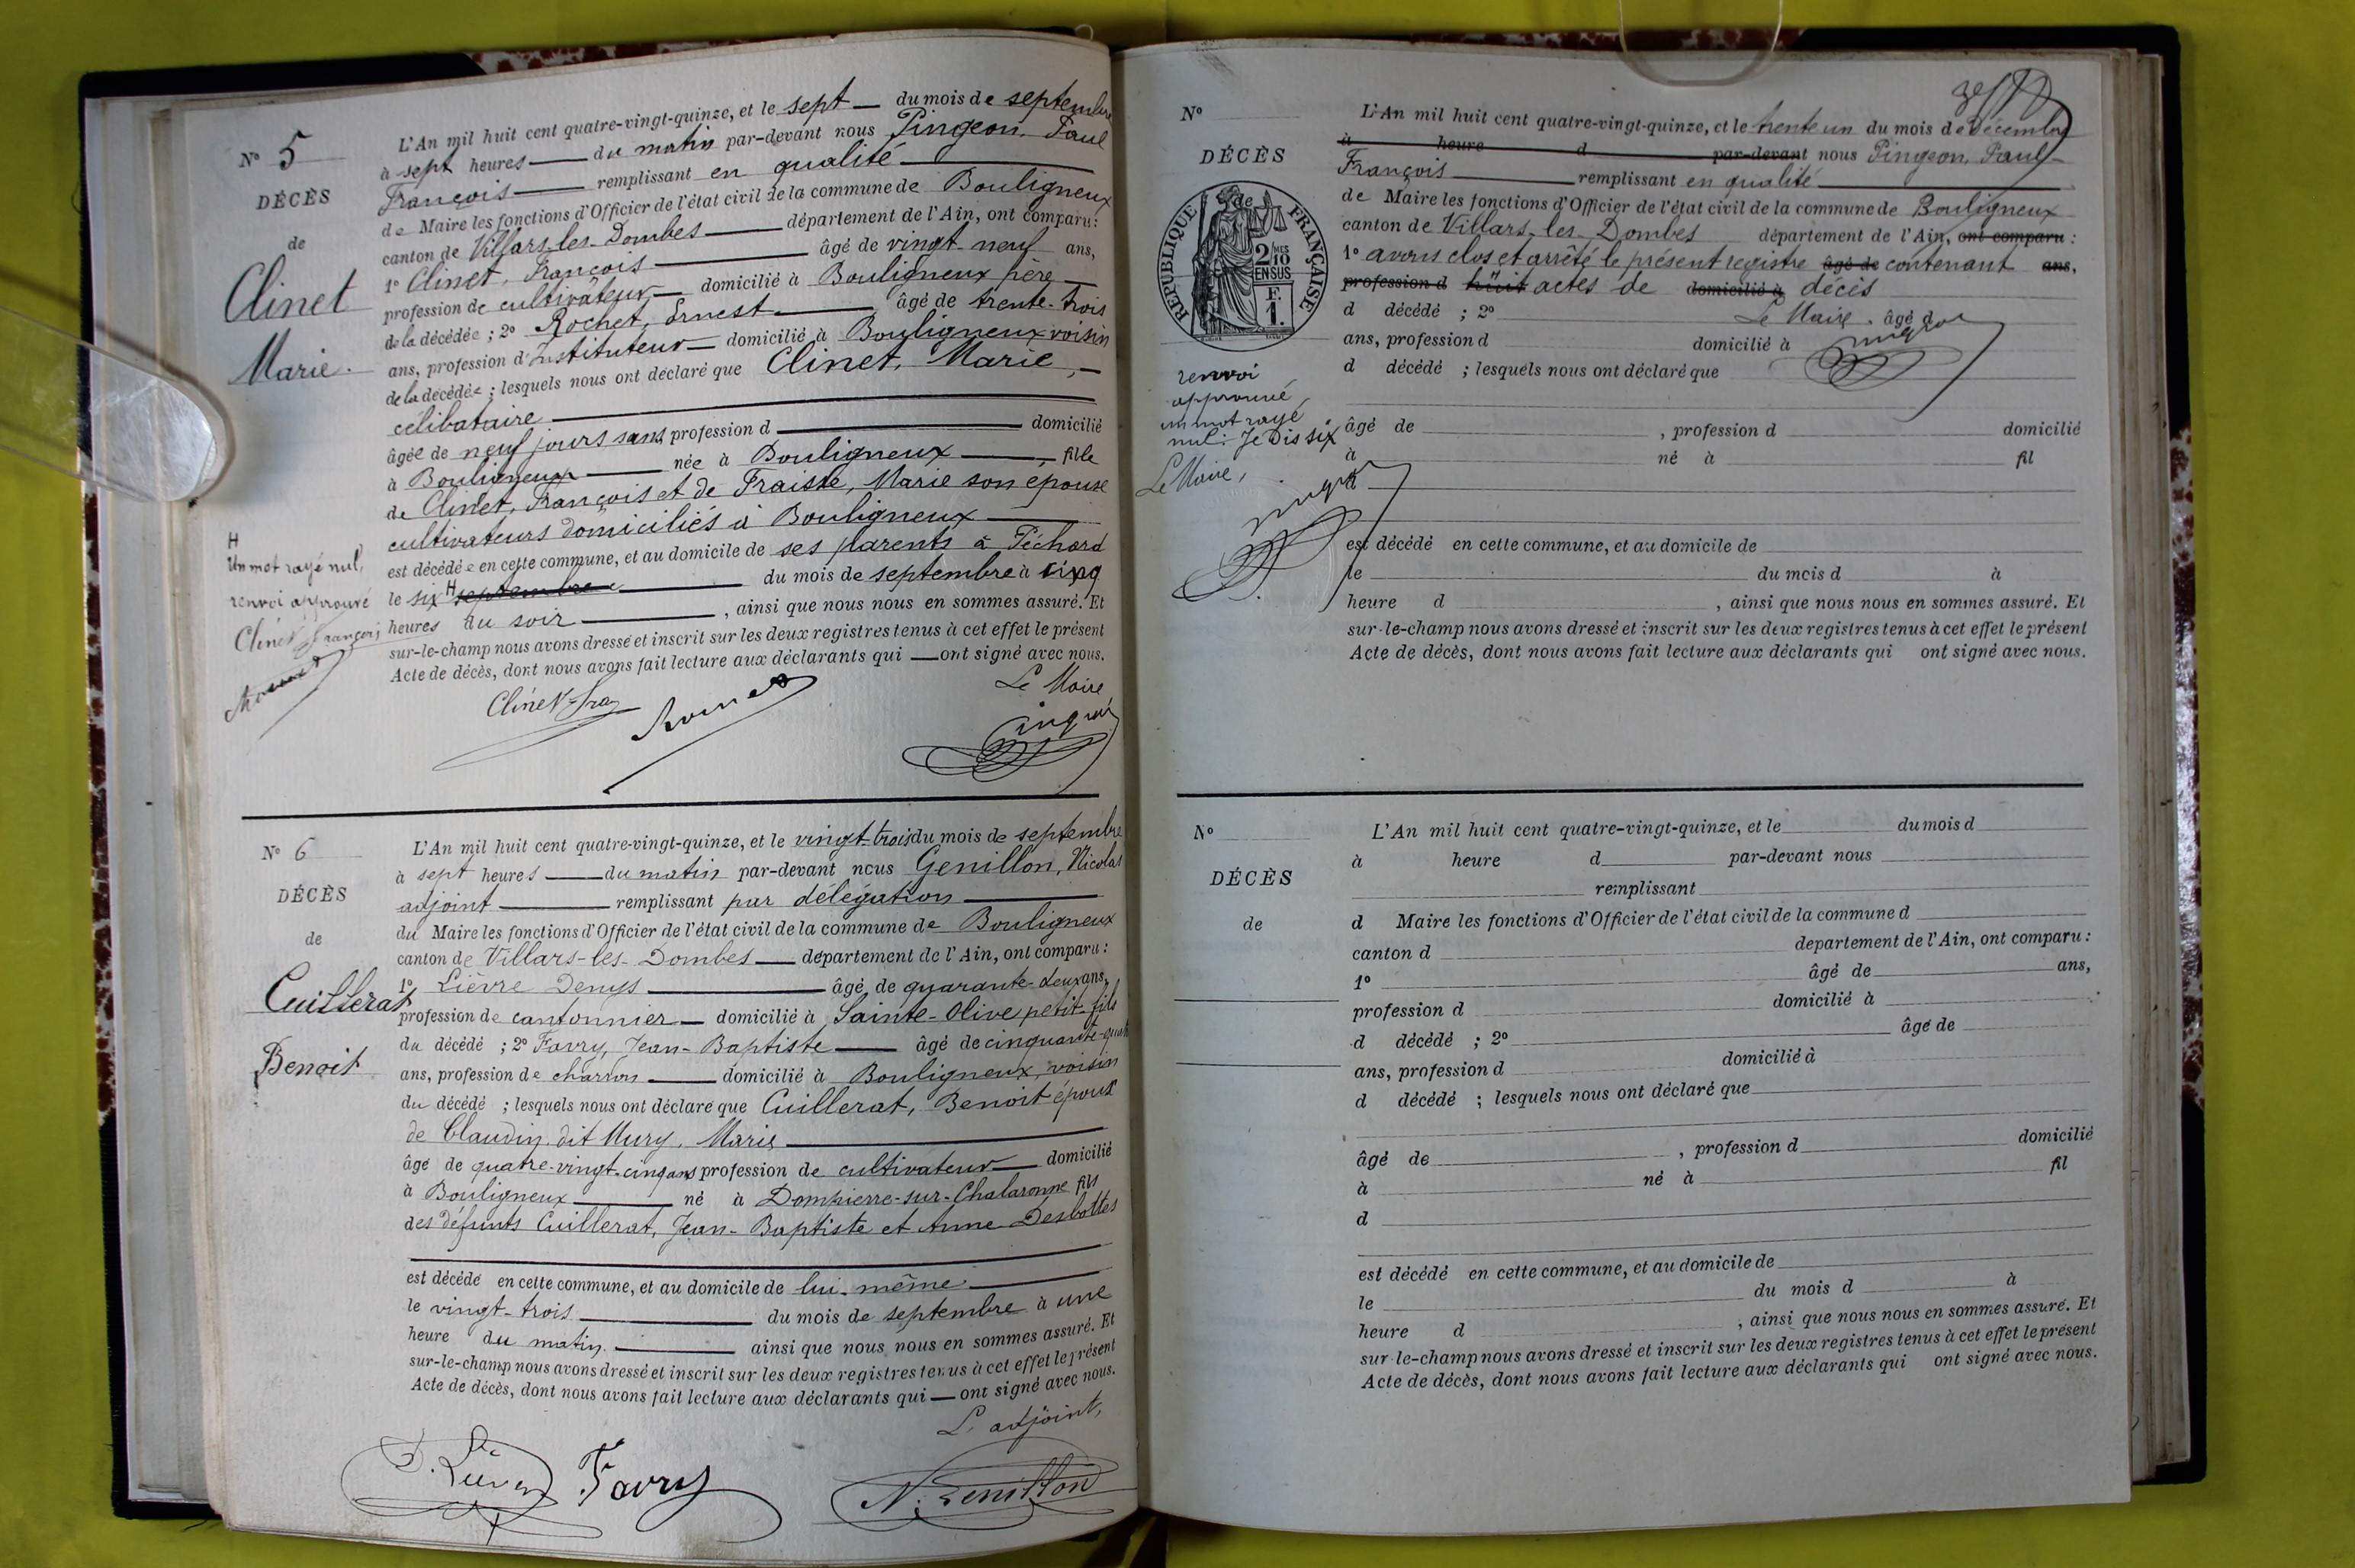 N° 5
DÉCÈS
de
Clinet
Marie.
L'An mil huit cent quatre-vingt-quinze, et le sept du mois de septembre
à sept heures du matin par-devant nous Pingeon, Paul
François remplissant en qualité
de Maire les fonctions d'Officier de l'état civil de la commune de Bouligneux
canton de Villars-les-Dombes département de l'Ain, ont comparu :
1° Clinet, François âgé de vingt-neuf ans,
profession de cultivateur domicilié à Bouligneux père
de la décédée ; 2° Rochet, Ernest âgé de trente-trois
ans, profession d'Instituteur domicilié à Bouligneux voisin
de la décédée ; lesquels nous ont déclaré que Clinet, Marie,
célibataire
âgée de neuf jours sans profession d domicilié
à Bouligneux née à Bouligneux, fille
de Clinet, François et de Fraiste, Marie son épouse
cultivateurs domiciliés à Bouligneux
est décédée en cette commune, et au domicile de ses parents à Péchard
le six H septembre du mois de septembre à cinq
heures du soir, ainsi que nous nous en sommes assuré. Et
sur-le-champ nous avons dressé et inscrit sur les deux registres tenus à cet effet le présent
Acte de décès, dont nous avons fait lecture aux déclarants qui ont signé avec nous.
H
Un mot rayé nul,
renvoi approuvé
Clinet François
Clinet Fra
Le Maire
N° 6
DÉCÈS
de
Cuillerat
Benoit
L'An mil huit cent quatre-vingt-quinze, et le vingt-trois du mois de septembre
à sept heures du matin par-devant nous Genillon, Nicolas
adjoint remplissant par délégation
du Maire les fonctions d'Officier de l'état civil de la commune de Bouligneux
canton de Villars-les-Dombes département de l'Ain, ont comparu :
1° Lièvre Denys âgé de quarante-deux ans,
profession de cantonnier domicilié à Sainte-Olive petit-fils
du décédé ; 2° Favry, Jean-Baptiste âgé de cinquante-quatre
ans, profession de charron domicilié à Bouligneux, voisin
du décédé ; lesquels nous ont déclaré que Cuillerat, Benoit époux
de Claudin dit Mury, Marie
âgé de quatre-vingt-cinq ans profession de cultivateur domicilié
à Bouligneux né à Dompierre-sur-Chalaronne fils
des défunts Cuillerat, Jean-Baptiste et Anne Desbottes
est décédé en cette commune, et au domicile de lui-même
le vingt-trois du mois de septembre à une
heure du matin. ainsi que nous nous en sommes assuré. Et
sur-le-champ nous avons dressé et inscrit sur les deux registres tenus à cet effet le présent
Acte de décès, dont nous avons fait lecture aux déclarants qui ont signé avec nous.
L'adjoint,
D. Lièvre Favry N. Genillon
N°
DÉCÈS
de
RÉPUBLIQUE FRANÇAISE
2 MES
10
EN SUS
F.
1.
L'An mil huit cent quatre-vingt-quinze, et le trente un du mois de Décembre
à heure d par-devant nous Pingeon, Paul-
François remplissant en qualité
de Maire les fonctions d'Officier de l'état civil de la commune de Bouligneux
canton de Villars-les-Dombes département de l'Ain, ont comparu :
1° avons clos et arrêté le présent registre âgé de contenant ans,
profession d huit actes de domicilié à décès
d décédé ; 2° Le Maire. âgé d
ans, profession d domicilié à
d décédé ; lesquels nous ont déclaré que
âgé de , profession d domicilié
à né à fil
d
est décédé en cette commune, et au domicile de
le du mois d à
heure d , ainsi que nous nous en sommes assuré. Et
sur-le-champ nous avons dressé et inscrit sur les deux registres tenus à cet effet le présent
Acte de décès, dont nous avons fait lecture aux déclarants qui ont signé avec nous.
renvoi
approuvé,
un mot rayé
nul: Je Dis six
Le Maire,
N°
DÉCÈS
de
L'An mil huit cent quatre-vingt-quinze, et le du mois d
à heure d par-devant nous
remplissant
d Maire les fonctions d'Officier de l'état civil de la commune d
canton d département de l'Ain, ont comparu :
1° âgé de ans,
profession d domicilié à
d décédé ; 2° âgé de
ans, profession d domicilié à
d décédé ; lesquels nous ont déclaré que
âgé de , profession d domicilié
à né à fil
d
est décédé en cette commune, et au domicile de
le du mois d à
heure d , ainsi que nous nous en sommes assuré. Et
sur-le-champ nous avons dressé et inscrit sur les deux registres tenus à cet effet le présent
Acte de décès, dont nous avons fait lecture aux déclarants qui ont signé avec nous.